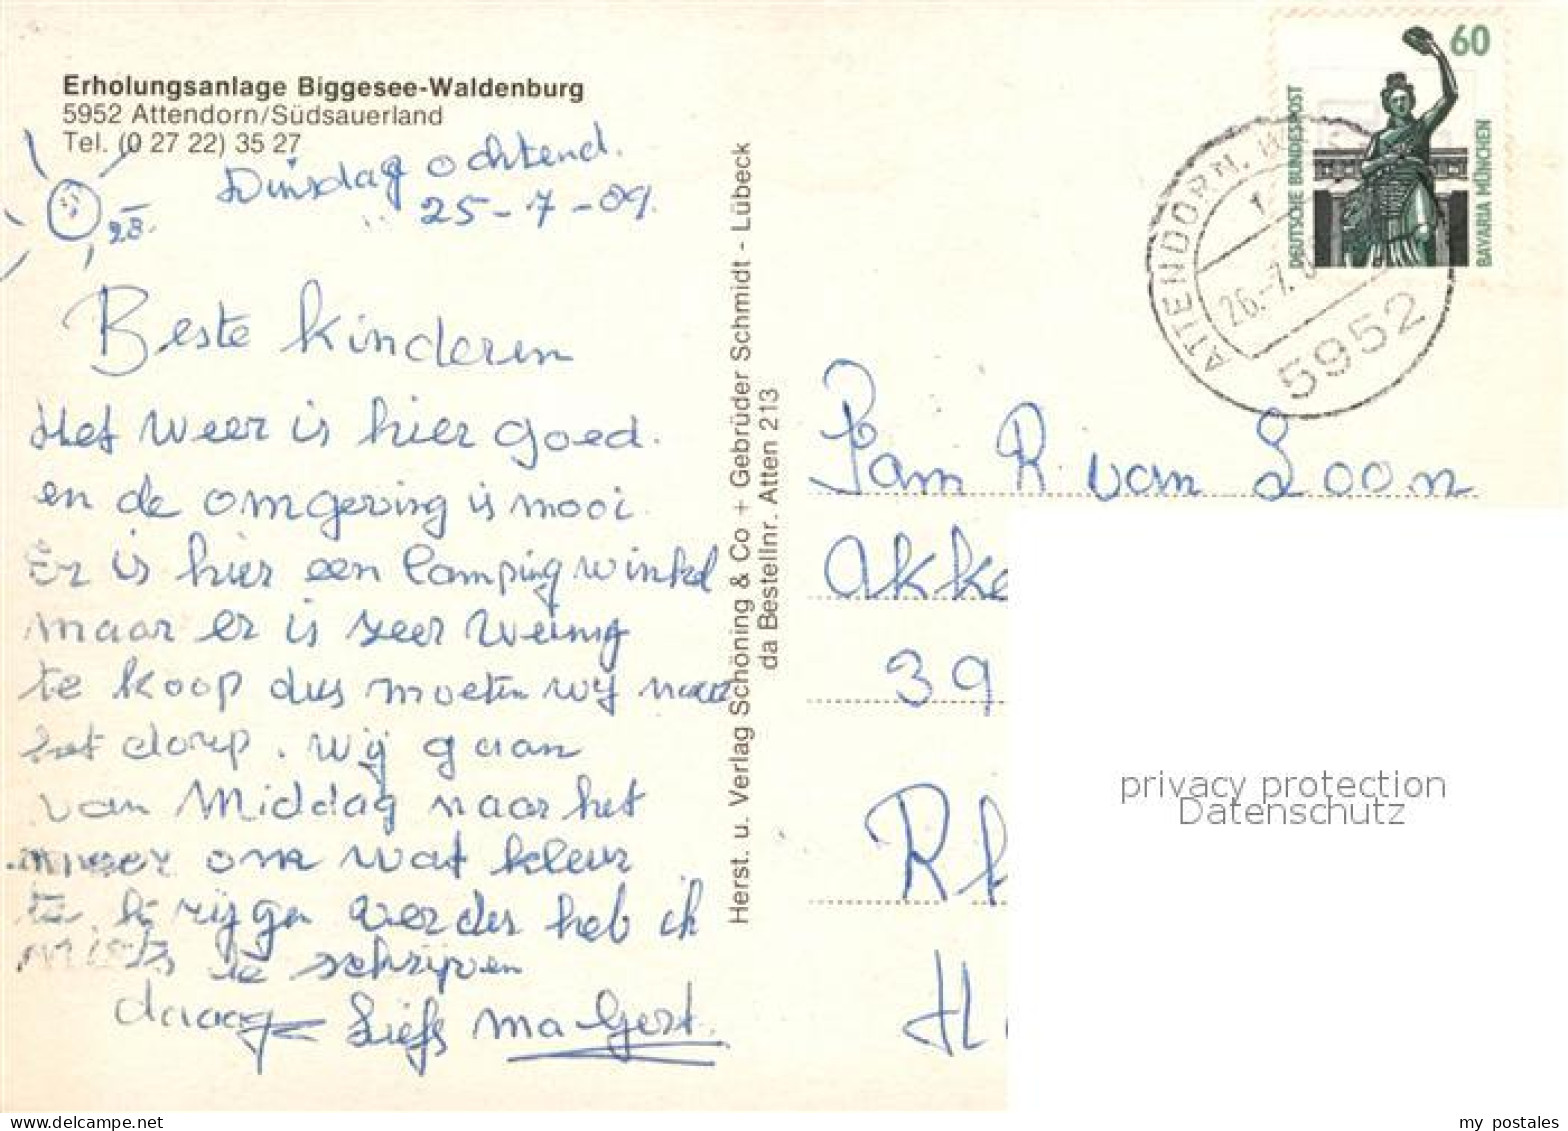 Erholungsanlage Biggesee-Waldenburg
5952 Attendorn/Südsauerland
Tel. (0 27 22) 35 27
Dinsdag ochtend.
25-7-89.
28.
Beste kinderen
Het weer is hier goed.
en de omgeving is mooi.
Er is hier een Camping winkel
maar er is zeer weinig
te koop dus moeten wij naar
het dorp. wij gaan
van Middag naar het
om wat kleur
te krijgen verder heb ik
niets te schrijven
daaag Liefs ma Gert.
Herst. u. Verlag Schöning & Co + Gebrüder Schmidt - Lübeck
da Bestellnr. Atten 213
60
DEUTSCHE BUNDESPOST
BAVARIA MÜNCHEN
ATTENDORN
26.-7.
5952
Fam R. van Loon
Akke
39
Rh
H
privacy protection
Datenschutz
my postales